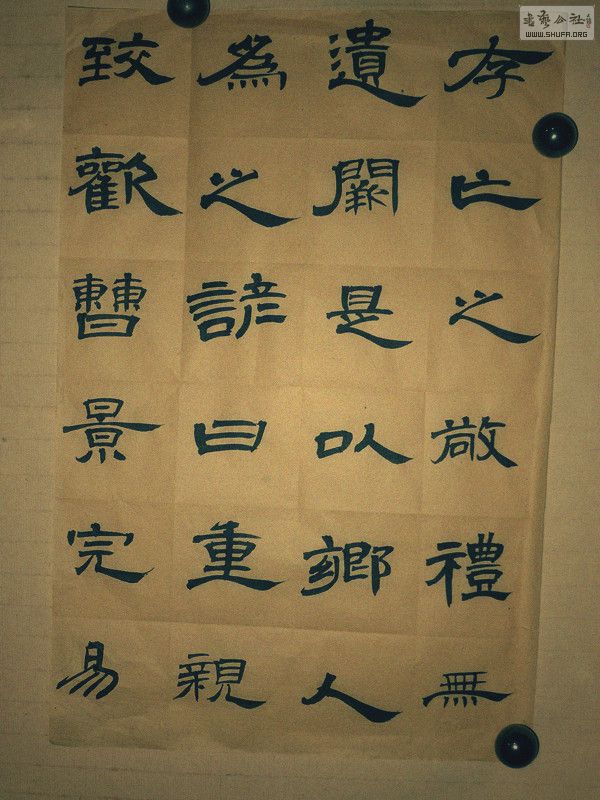 存亡之敬禮無
遺闕是以鄉人
為之諺曰重親
致歡曹景完易
书艺公社
WWW.SHUFA.ORG